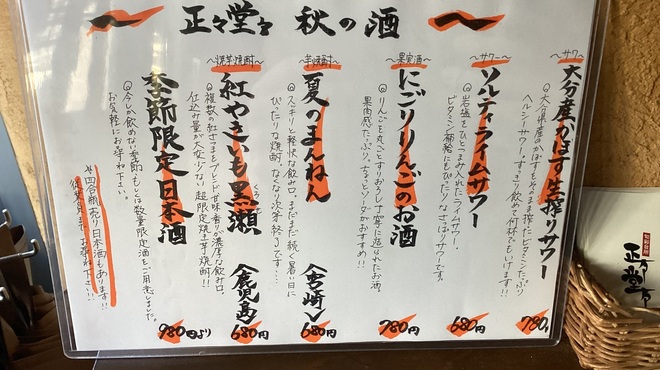 正々堂々 秋の酒
〜サワー〜
大分産かぼす生搾りサワー
◎大分県産のかぼすをそのまま搾ったビタミンたっぷり
ヘルシーサワー。すっきり飲めて何杯でもいけます!!
780円
〜サワー〜
ソルティライムサワー
◎岩塩をひとつまみ入れたライムサワー。
ビタミン補給にもぴったりなさっぱりサワーです。
680円
〜果実酒〜
にごりりんごのお酒
◎りんごを丸ごとすりおろし丁寧に造られたお酒。
果肉感たっぷり。ちょっとソーダがおすすめ!!
780円
〜芋焼酎〜
夏のまんねん
〈宮崎〉
◎スッキリと軽快な飲み口。まだまだ続く暑い日に
ぴったりな焼酎。なくなり次第終了です…
680円
〜焼芋焼酎〜
紅やきいも黒瀬
くろせ
〈鹿児島〉
◎複数の紅さつまをブレンド。甘味香りが濃厚な飲み口。
仕込み量が大変少ない超限定焼き芋焼酎!!
680円
季節限定日本酒
◎今しか飲めない季節もしくは数量限定酒をご用意しました。
お気軽にお尋ね下さい。
980円より
※四合瓶売り日本酒もあります!!
従業員まで、お尋ね下さい!!
正々堂々